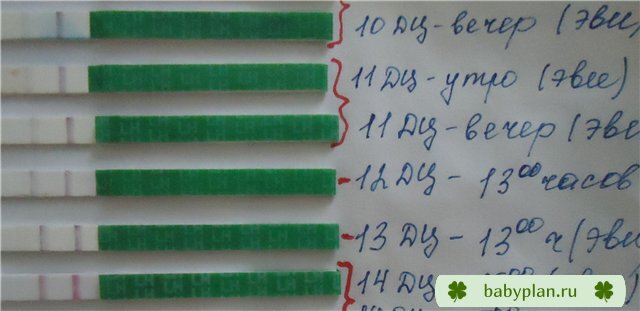 10 ДЦ - вечер (Эви
11 ДЦ - утро (Эви)
11 ДЦ - вечер (Эви
12 ДЦ - 13⁰⁰ часов
13 ДЦ - 13⁰⁰ ч (Эви
14 ДЦ
babyplan.ru